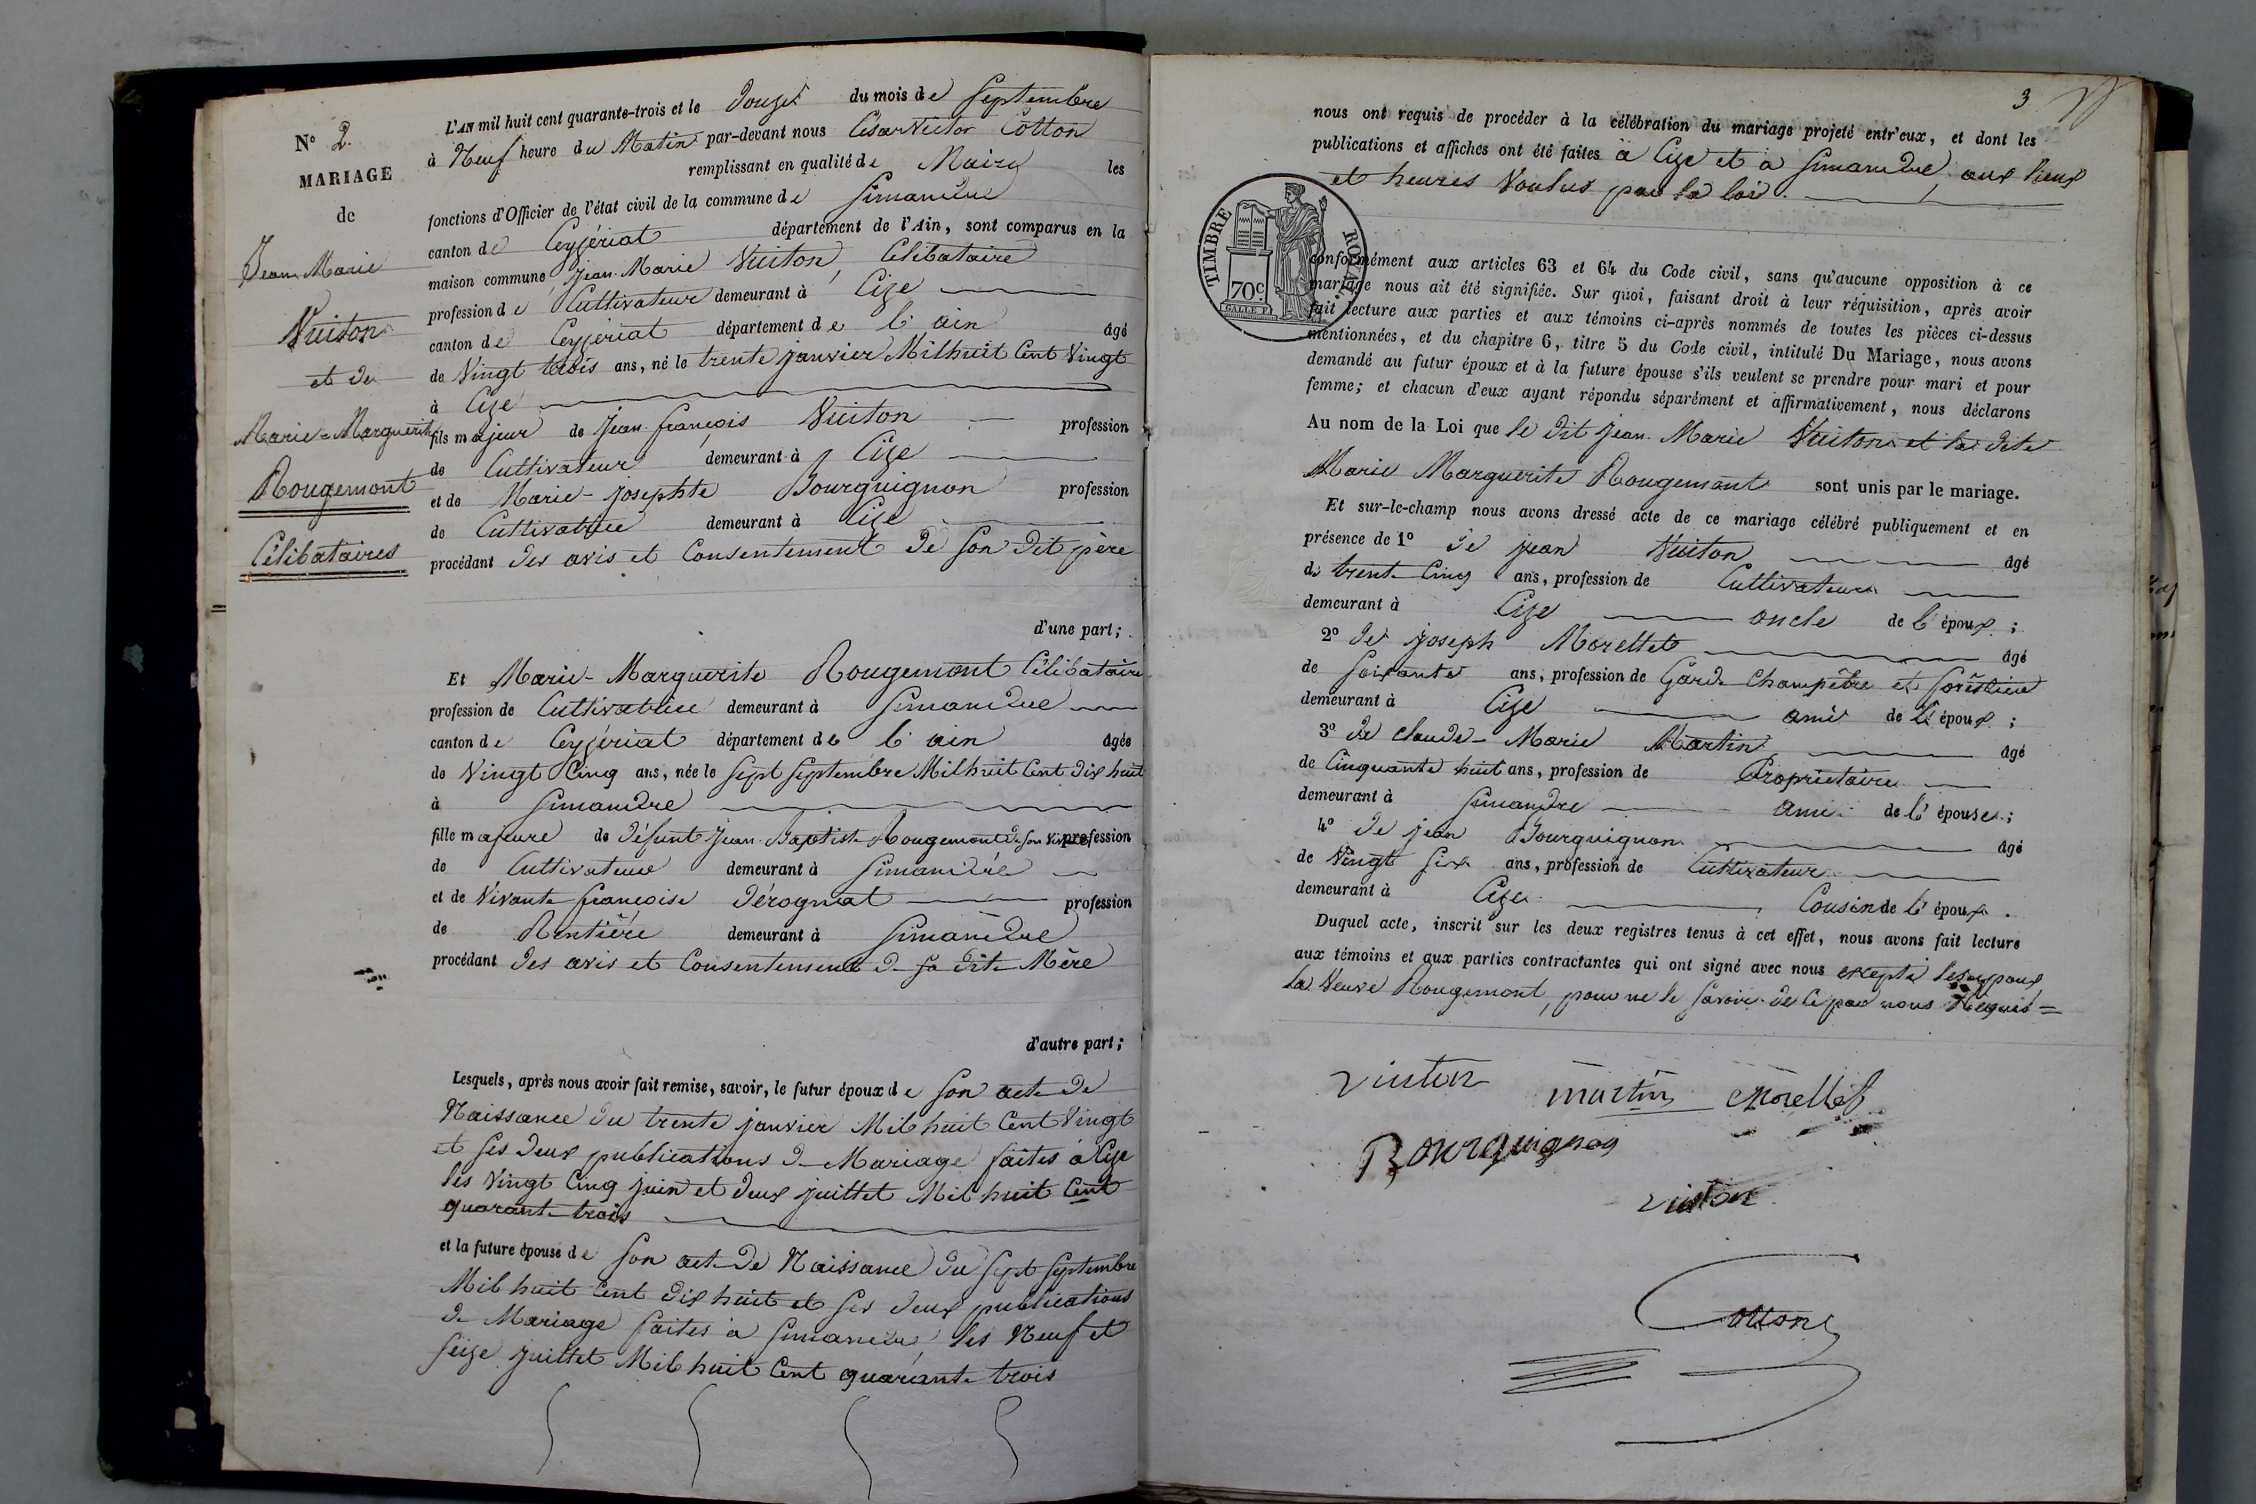 N° 2.
MARIAGE
de
Jean Marie
Vuiton
et de
Marie-Marguerite
Rougemont
Célibataires
L'AN mil huit cent quarante-trois et le Douze du mois de Septembre
à Neuf heure du Matin par-devant nous César Victor Cotton
remplissant en qualité de Maire les
fonctions d'Officier de l'état civil de la commune de Simandre
canton de Ceyzériat département de l'Ain, sont comparus en la
maison commune Jean Marie Vuiton, Célibataire
profession de Cultivateur demeurant à Cize
canton de Ceyzeriat département de l'ain âgé
de Vingt trois ans, né le trente janvier Mil huit Cent Vingt
à Cize
fils majeur de Jean françois Vuiton profession
de Cultivateur demeurant à Cize
et de Marie-Josephte Bourguignon profession
de Cultivatrice demeurant à Cize
procédant des avis et Consentement de Son Dit père
d'une part;
Et Marie-Marguerite Rougemont Célibataire
profession de Cultivatrice demeurant à Simandre
canton de Ceyzériat département de l'ain âgée
de Vingt Cinq ans, née le Sept Septembre Mil huit Cent dix huit
à Simandre
fille majeure de défunt Jean Baptiste Rougemont de son vivant profession
de Cultivateur demeurant à Simandre
et de Vivante françoise Dérognat profession
de Rentière demeurant à Simandre
procédant des avis et Consentement de Sa dite Mère
d'autre part;
Lesquels, après nous avoir fait remise, savoir, le futur époux de Son acte de
Naissance du trente janvier Mil huit Cent Vingt
et Ses deux publications de Mariage faites à Cize
les Vingt Cinq juin et deux juillet Mil huit Cent
quarante trois
et la future épouse de Son acte de Naissance du Sept Septembre
Mil huit Cent dix huit et Ses deux publications
de Mariage faites à Simandre les Neuf et
Seize juillet Mil huit Cent quarante trois
3
nous ont requis de procéder à la célébration du mariage projeté entr'eux, et dont les
publications et affiches ont été faites à Cize et à Simandre aux lieux
et heures Voulus par la loi.
TIMBRE ROYAL
70c.
conformément aux articles 63 et 64 du Code civil, sans qu'aucune opposition à ce
mariage nous ait été signifiée. Sur quoi, faisant droit à leur réquisition, après avoir
fait lecture aux parties et aux témoins ci-après nommés de toutes les pièces ci-dessus
mentionnées, et du chapitre 6, titre 5 du Code civil, intitulé Du Mariage, nous avons
demandé au futur époux et à la future épouse s'ils veulent se prendre pour mari et pour
femme; et chacun d'eux ayant répondu séparément et affirmativement, nous déclarons
Au nom de la Loi que le dit Jean Marie Vuiton et la dite
Marie Marguerite Rougemont sont unis par le mariage.
Et sur-le-champ nous avons dressé acte de ce mariage célébré publiquement et en
présence de 1° de jean Vuiton âgé
de trente Cinq ans, profession de Cultivateur
demeurant à Cize oncle de l'époux;
2° de joseph Morellet âgé
de Soixante ans, profession de Garde Champêtre et forêstier
demeurant à Cize ami de l'époux;
3° de Claude-Marie Martin âgé
de Cinquante huit ans, profession de Propriétaire
demeurant à Simandre ami de l'épouse;
4° de jean Bourguignon âgé
de Vingt Six ans, profession de Cultivateur
demeurant à Cize Cousin de l'époux.
Duquel acte, inscrit sur les deux registres tenus à cet effet, nous avons fait lecture
aux témoins et aux parties contractantes qui ont signé avec nous excepté
la Veuve Rougemont, pour ne le Savoir de Ce par nous Requis =
Viuton martin Morellet
Bourguignon
viuton
Cotton